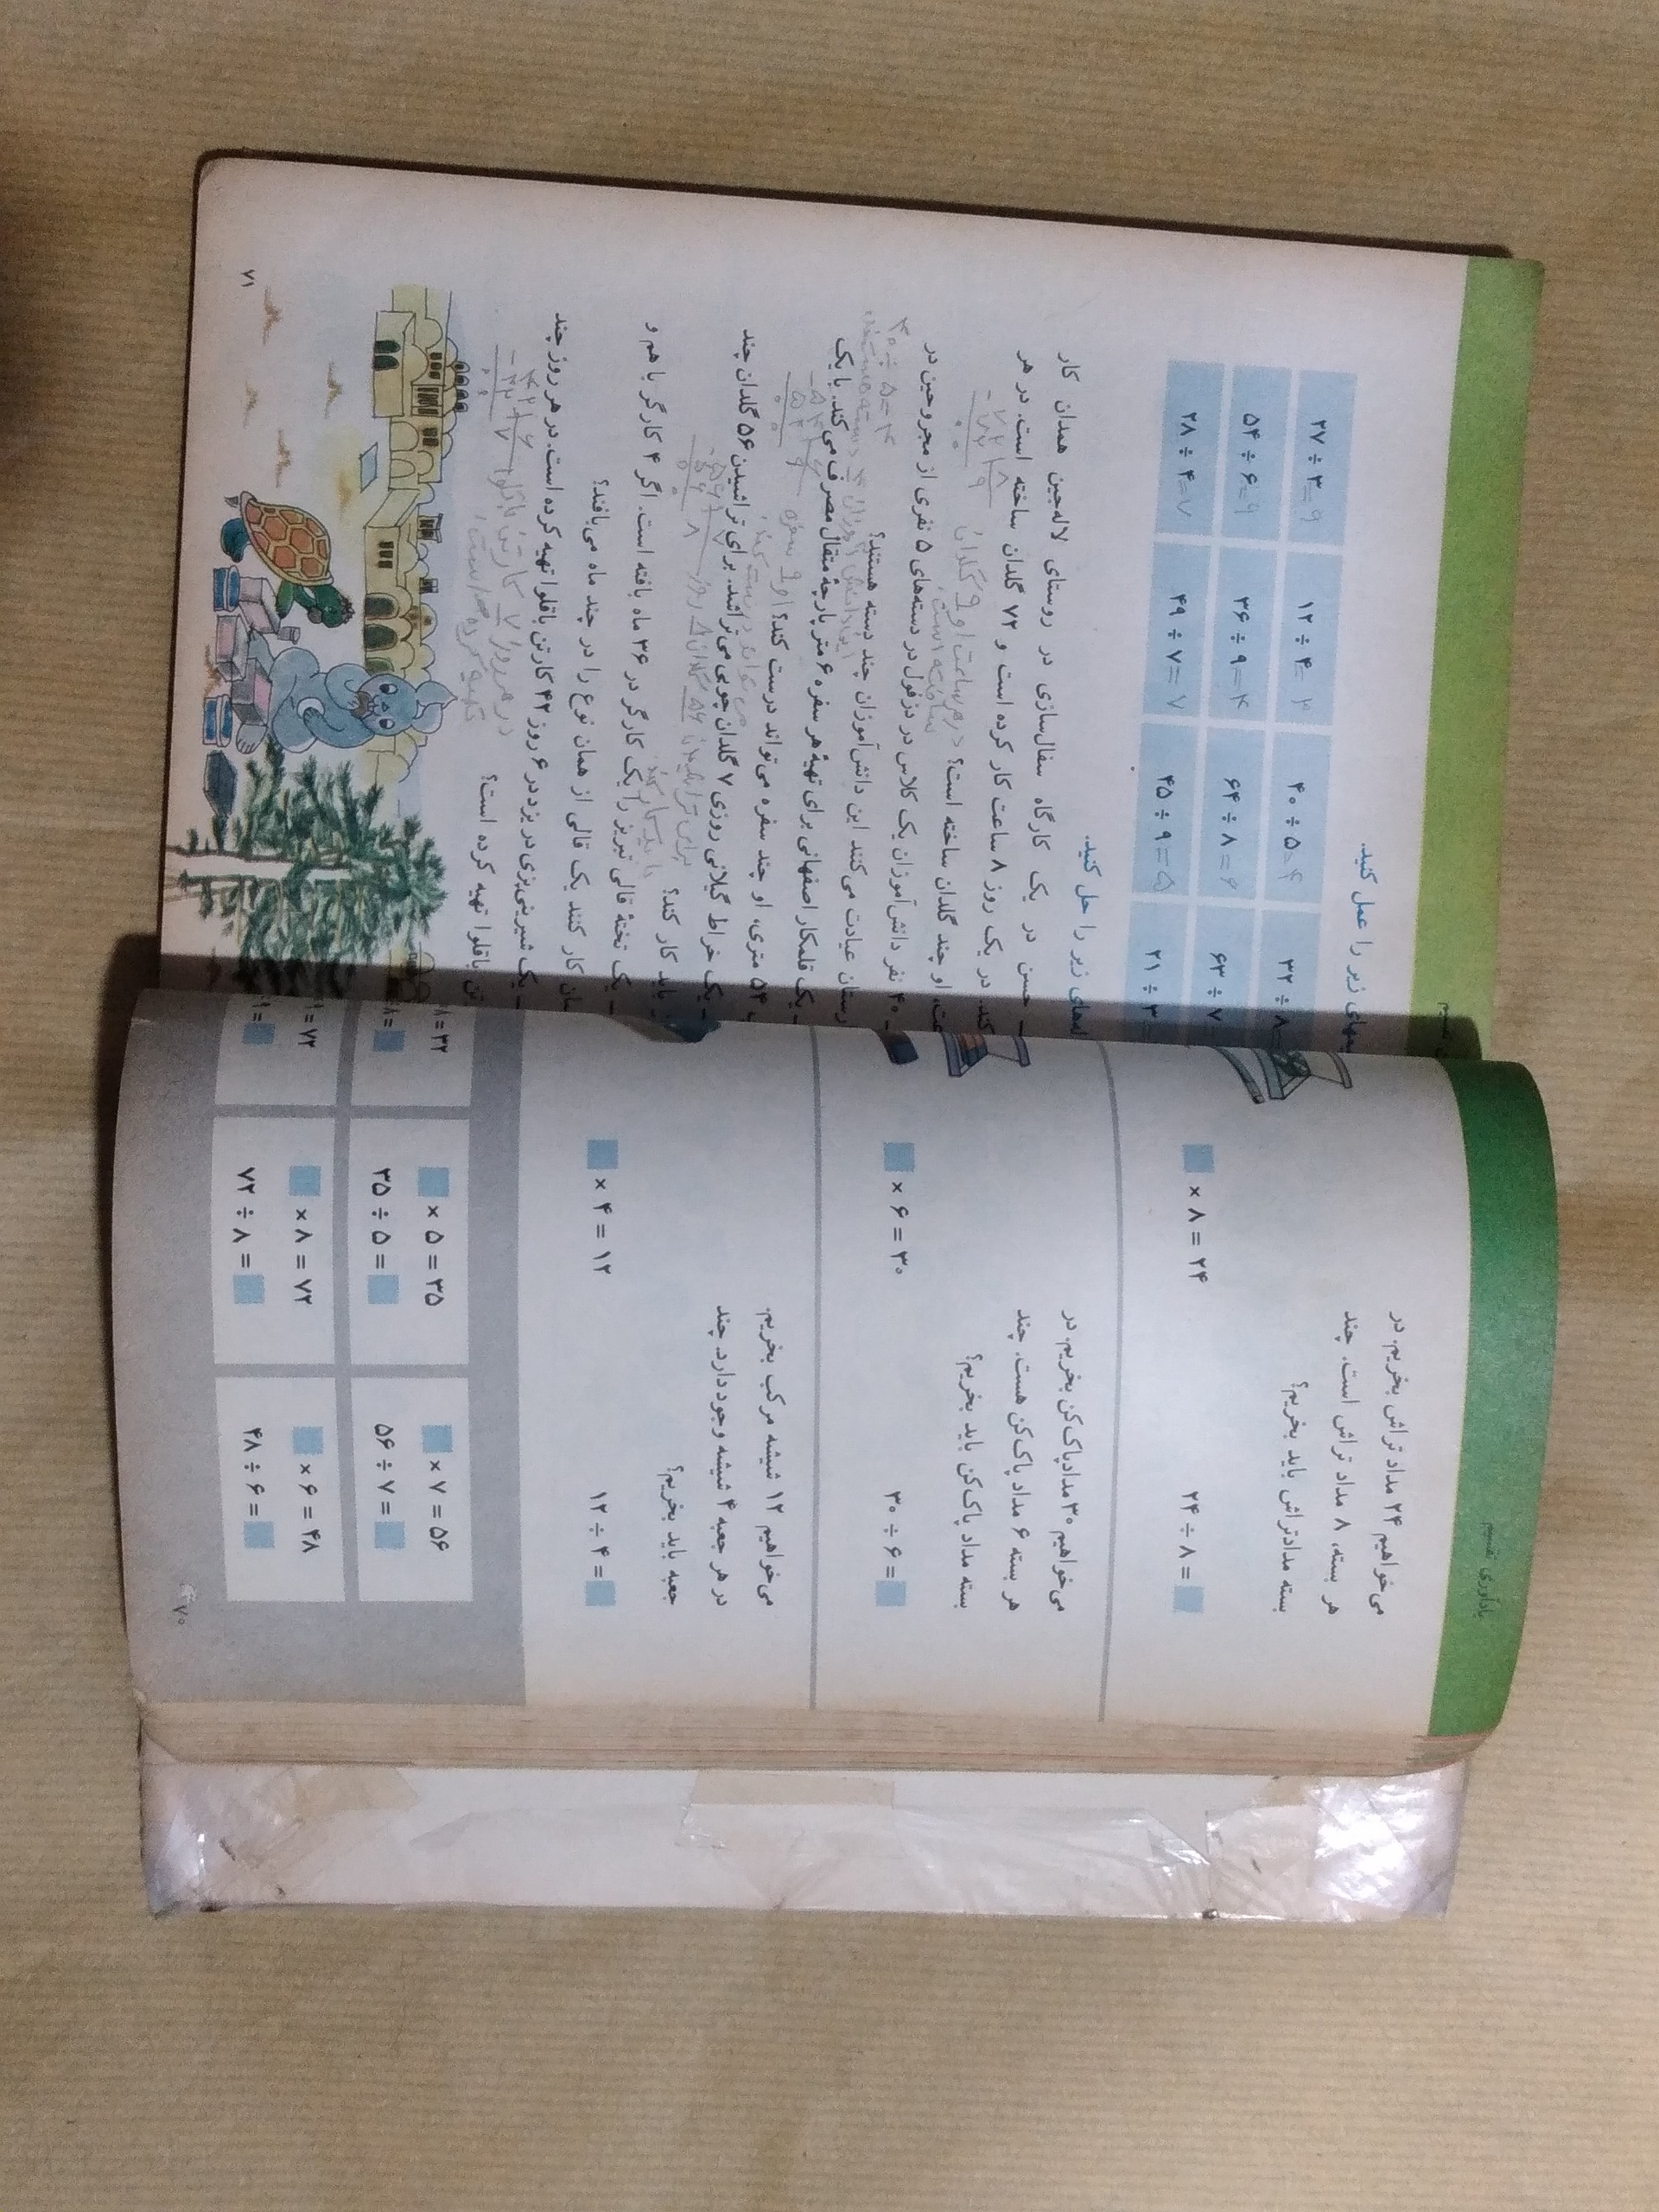 یادآوری تقسیم
می‌خواهیم ۲۴ مداد تراش بخریم. در
هر بسته، ۸ مداد تراش است. چند
بسته مدادتراش باید بخریم؟
۲۴ ÷ ۸ =
× ۸ = ۲۴
می‌خواهیم ۳۰ مدادپاک‌کن بخریم. در
هر بسته ۶ مداد پاک‌کن هست. چند
بسته مداد پاک‌کن باید بخریم؟
۳۰ ÷ ۶ =
× ۶ = ۳۰
می‌خواهیم ۱۲ شیشه مرکب بخریم.
در هر جعبه ۴ شیشه وجود دارد. چند
جعبه باید بخریم؟
۱۲ ÷ ۴ =
× ۴ = ۱۲
× ۷ = ۵۶
۵۶ ÷ ۷ =
× ۵ = ۳۵
۳۵ ÷ ۵ =
۸ = ۳۲
۸ =
× ۶ = ۴۸
۴۸ ÷ ۶ =
× ۸ = ۷۲
۷۲ ÷ ۸ =
= ۷۲
۹ =
۷۰
زیر را عمل کنید.
۲۷ ÷ ۳ = ۹
۱۲ ÷ ۴ = ۳
۴۰ ÷ ۵
۳۲ ÷ ۸
۵۴ ÷ ۶ = ۹
۳۶ ÷ ۹ = ۴
۶۴ ÷ ۸ =
۶۳ ÷ ۷
۲۸ ÷ ۴ = ۷
۴۹ ÷ ۷ = ۷
۴۵ ÷ ۹ = ۵
۲۱ ÷ ۳
زیر را حل کنید.
– حسن در یک کارگاه سفال‌سازی در روستای لاله‌جین همدان کار
کند. در یک روز ۸ ساعت کار کرده است و ۷۲ گلدان ساخته است. در هر
او چند گلدان ساخته است؟ در هر ساعت او ۹ گلدان
ساخته است
۷۲ ۸
– ۷۲ ۹
۰۰
– ۴۰ نفر دانش‌آموزان یک کلاس در دزفول در دسته‌های ۵ نفری از مجروحین در
عیادت می‌کنند این دانش‌آموزان چند دسته هستند؟
– یک قلمکار اصفهانی برای تهیهٔ هر سفره ۶ متر پارچهٔ متقال مصرف می‌کند. با یک
۵۴ متری، او چند سفره می‌تواند درست کند؟ او ۹ سفره
می تواند درست کند
– یک خراط گیلانی روزی ۷ گلدان چوبی می‌تراشد. برای تراشیدن ۵۶ گلدان چند
باید کار کند؟
برای تراشیدن ۵۶ گلدان ۸ روز
باید کار کند
– یک تختهٔ قالی تبریز را یک کارگر در ۳۶ ماه بافته است. اگر ۴ کارگر با هم و
کار کنند یک قالی از همان نوع را در چند ماه می‌بافند؟
– یک شیرینی‌پزی در یزد در ۶ روز ۴۲ کارتن باقلوا تهیه کرده است. در هر روز چند
باقلوا تهیه کرده است؟
در هر روز ۷ کارتن باقلوا
تهیه کرده است
۴۲ ۶
– ۴۲ ۷
۰۰
۷۱